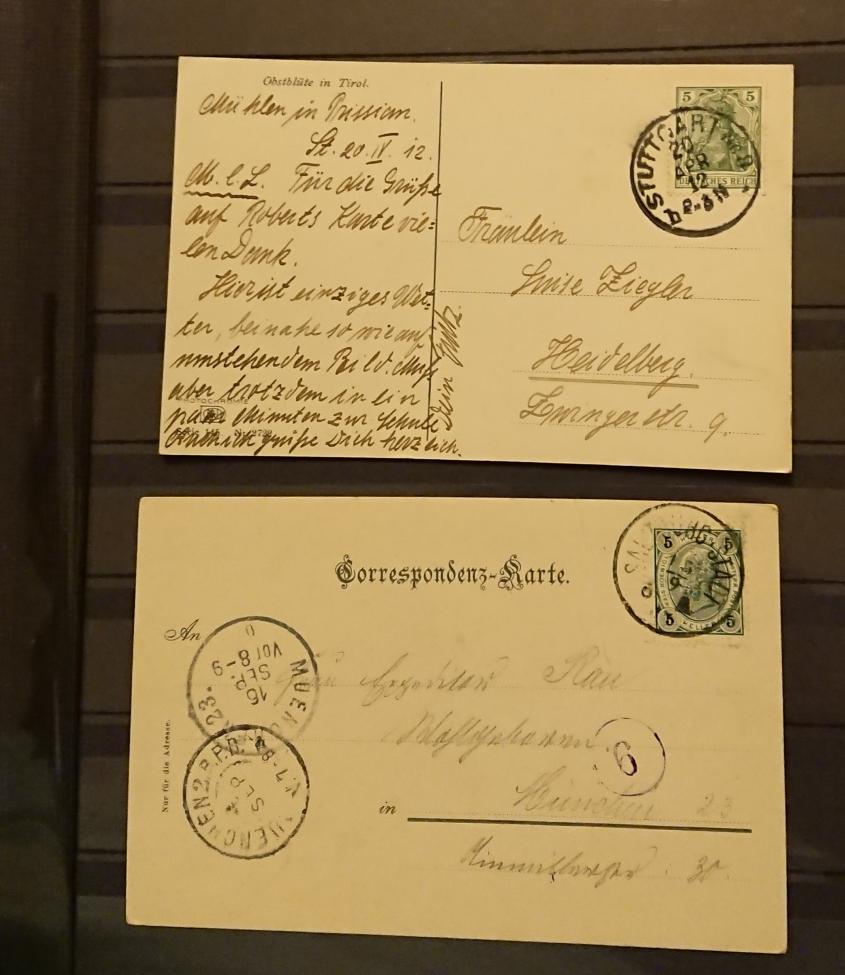 Obstblüte in Tirol.
Mühlen in Prissian.
St. 20. IV. 12.
M. l. L. Für die Grüße
auf Roberts Karte vie=
len Dank.
Hier ist einziges Wet=
ter, beinahe so wie auf
umstehendem Bild. Muß
aber trotzdem in ein
paar Minuten zur Schule
grüße Dich herzlich.
Dein Fritz.
5 5
DEUTSCHES REICH
STUTTGART
20
APR
12
Fräulein
Luise Ziegler
Heidelberg.
Zwingerstr. 9.
Correspondenz-Karte.
5 5
5 5
HELLER
An
MUENCHEN
16
SEP.
VOR 8-9
23.
MUENCHEN 2 B.P.
SEP
Nur für die Adresse.
Frau Expeditor Rau
Wohlgeboren
6
in München 23
30.